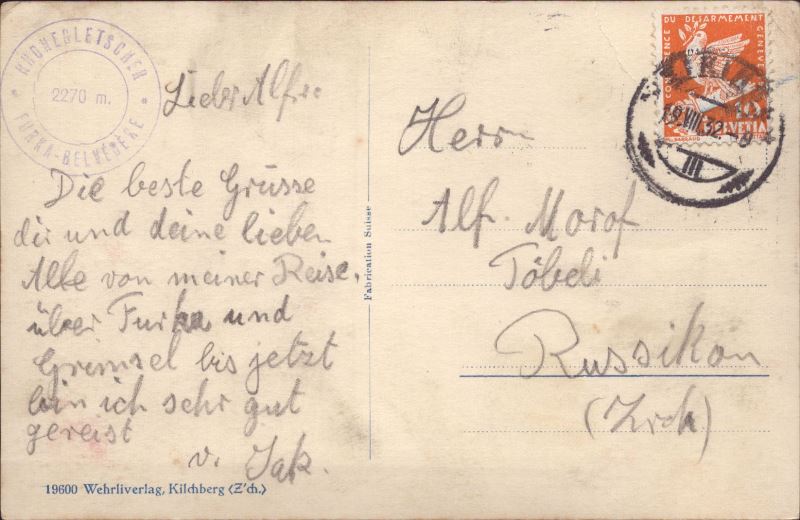 RHONEGLETSCHER
2270 m.
FURKA-BELVEDERE
Lieber Alfr.
Die beste Grüsse
dir und deine lieben
Alle von meiner Reise.
über Furka und
Grimsel bis jetzt
bin ich sehr gut
gereist
v. Jak.
19600 Wehrliverlag, Kilchberg (Z'ch.)
Fabrication Suisse
CONFERENCE DU DESARMEMENT GENEVE
10
HELVETIA
19.VIII.32.
III
Herrn
Alf. Morof
Töbeli
Russikon
(Zrch)